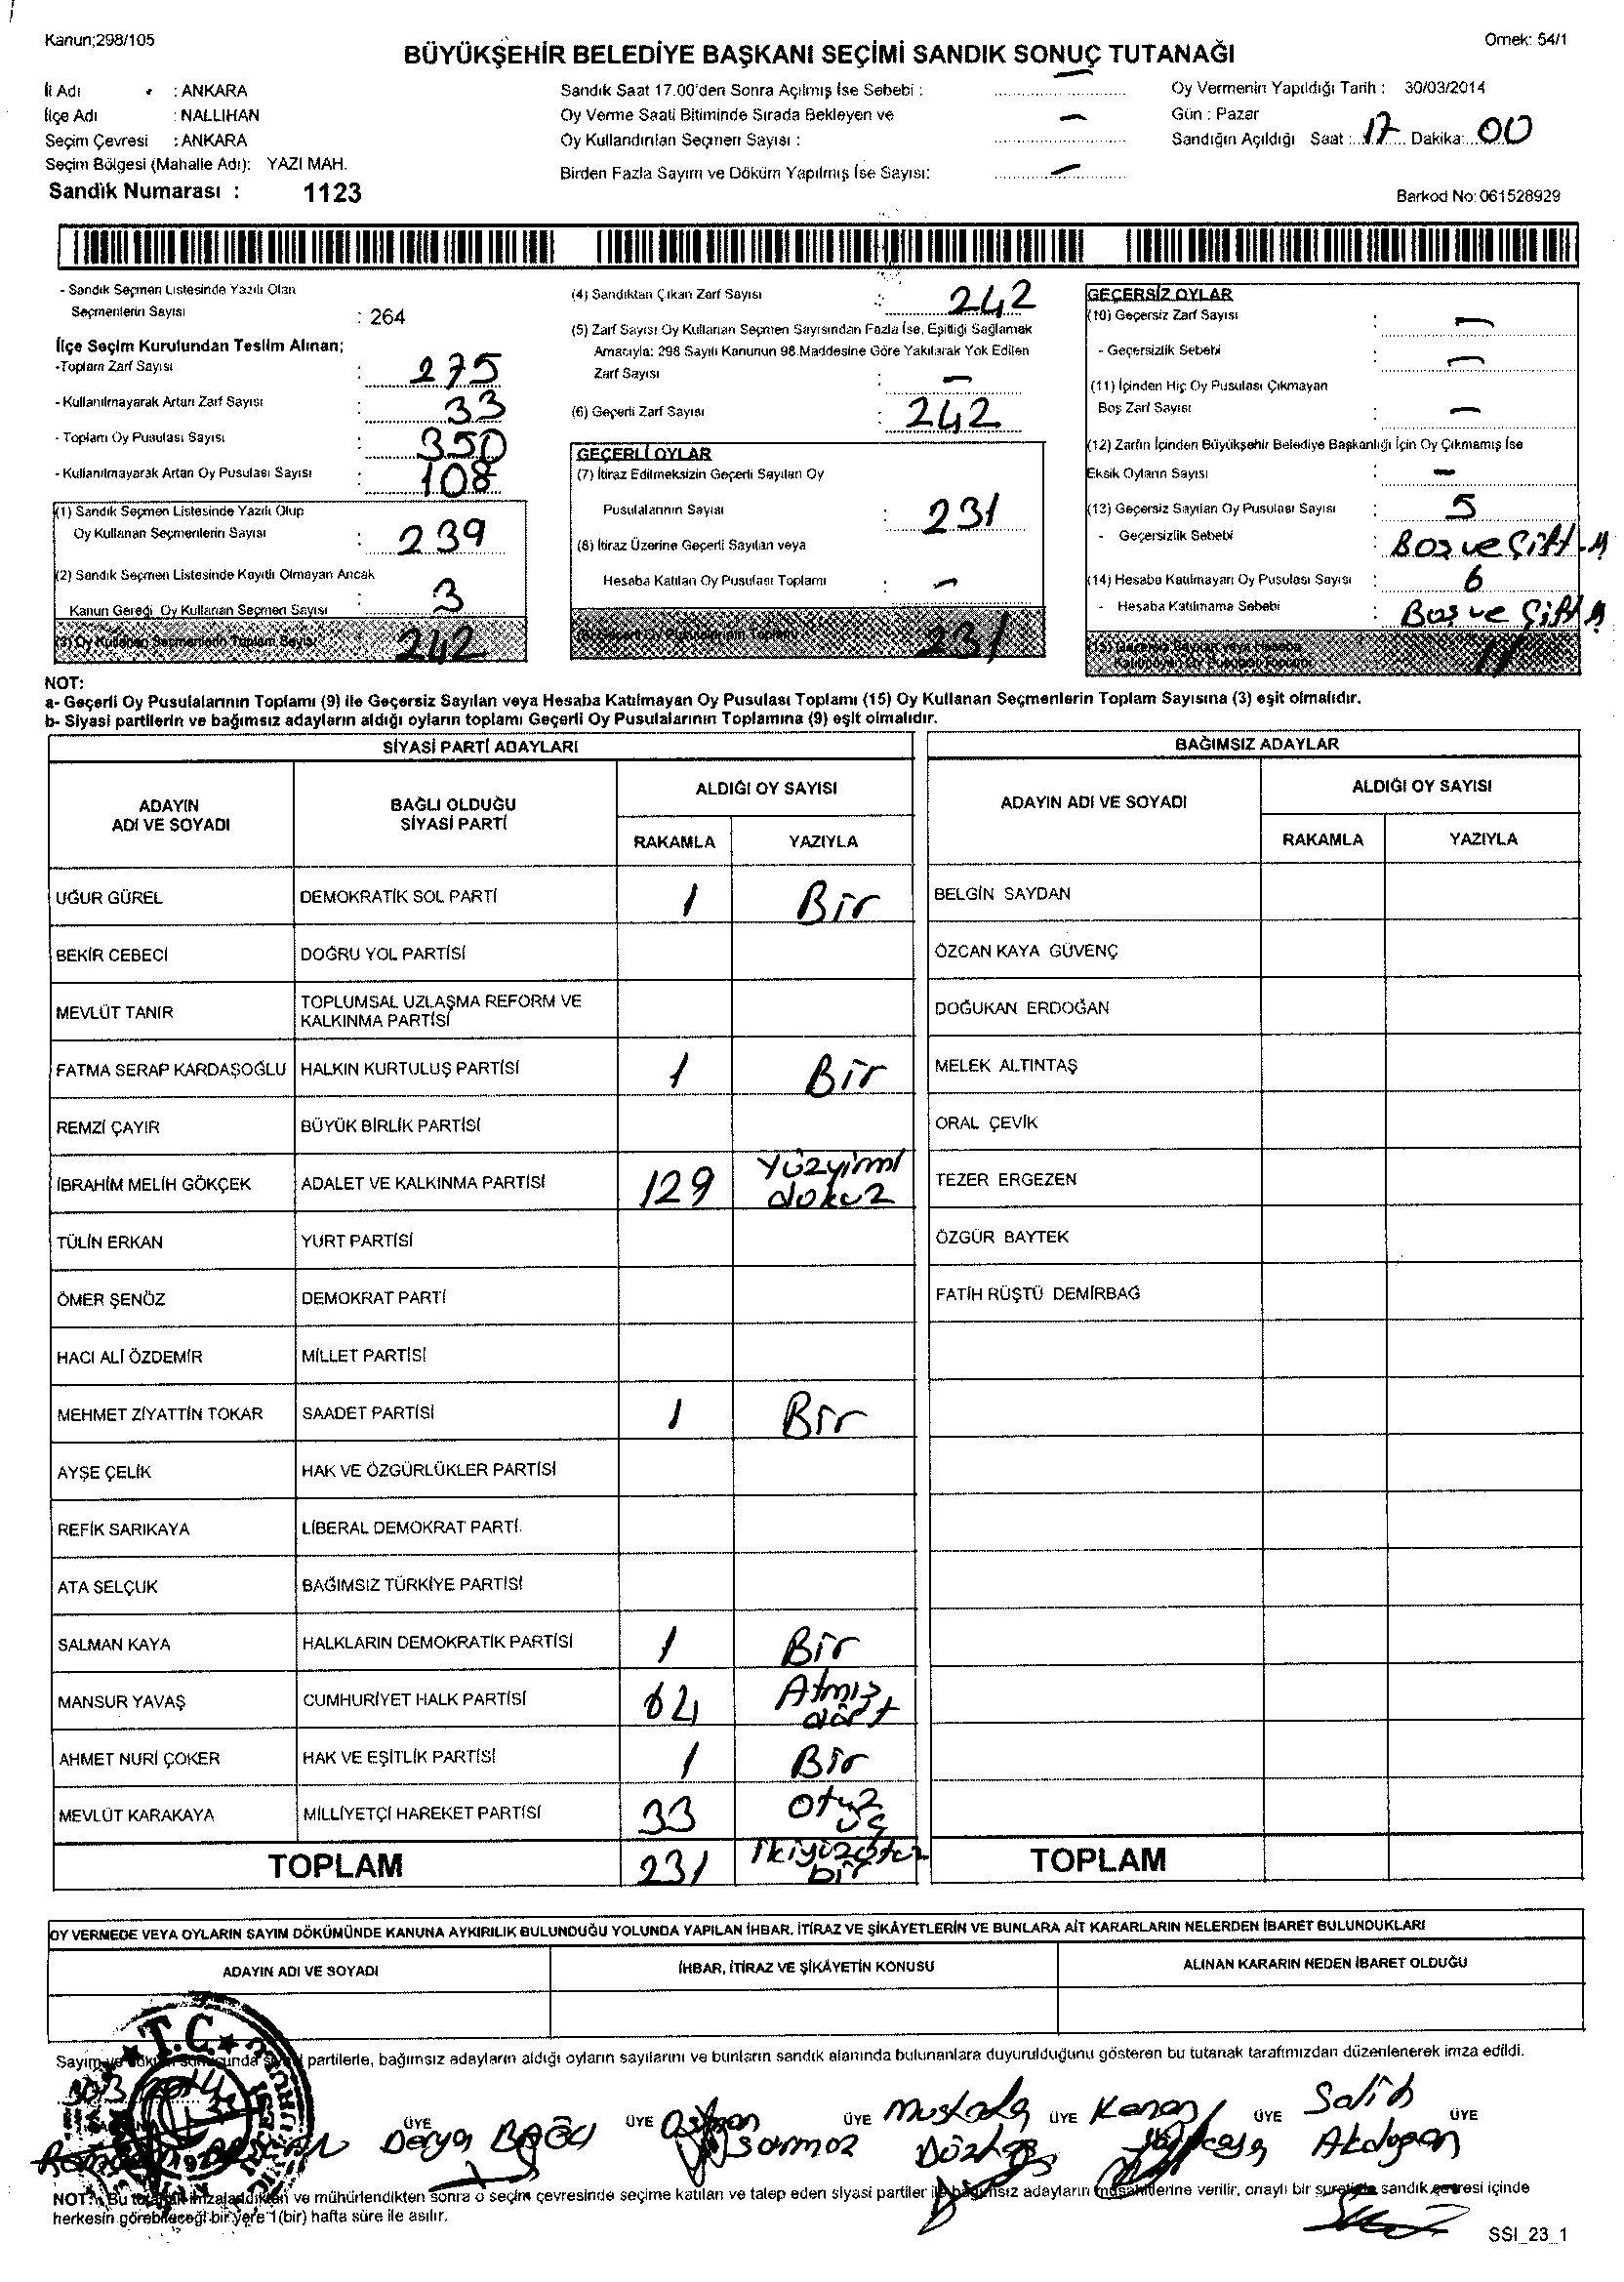 Kanun;298/105
Örnek: 54/1
BÜYÜKŞEHİR BELEDİYE BAŞKANI SEÇİMİ SANDIK SONUÇ TUTANAĞI
İl Adı : ANKARA
İlçe Adı : NALLIHAN
Seçim Çevresi : ANKARA
Seçim Bölgesi (Mahalle Adı): YAZI MAH.
Sandık Numarası : 1123
Sandık Saat 17.00'den Sonra Açılmış İse Sebebi : —
Oy Verme Saati Bitiminde Sırada Bekleyen ve
Oy Kullandırılan Seçmen Sayısı : —
Birden Fazla Sayım ve Döküm Yapılmış İse Sayısı: —
Oy Vermenin Yapıldığı Tarih : 30/03/2014
Gün : Pazar
Sandığın Açıldığı Saat : 17 Dakika: 00
Barkod No: 061528929
- Sandık Seçmen Listesinde Yazılı Olan
Seçmenlerin Sayısı : 264
İlçe Seçim Kurulundan Teslim Alınan;
-Toplam Zarf Sayısı : 275
- Kullanılmayarak Artan Zarf Sayısı : 33
- Toplam Oy Pusulası Sayısı : 350
- Kullanılmayarak Artan Oy Pusulası Sayısı : 108
(1) Sandık Seçmen Listesinde Yazılı Olup
Oy Kullanan Seçmenlerin Sayısı : 239
(2) Sandık Seçmen Listesinde Kayıtlı Olmayan Ancak
Kanun Gereği Oy Kullanan Seçmen Sayısı : 3
(3) Oy Kullanan Seçmenlerin Toplam Sayısı 242
(4) Sandıktan Çıkan Zarf Sayısı : 242
(5) Zarf Sayısı Oy Kullanan Seçmen Sayısından Fazla İse, Eşitliği Sağlamak
Amacıyla: 298 Sayılı Kanunun 98.Maddesine Göre Yakılarak Yok Edilen
Zarf Sayısı : —
(6) Geçerli Zarf Sayısı : 242
GEÇERLİ OYLAR
(7) İtiraz Edilmeksizin Geçerli Sayılan Oy
Pusulalarının Sayısı : 231
(8) İtiraz Üzerine Geçerli Sayılan veya
Hesaba Katılan Oy Pusulası Toplamı : —
(9) Geçerli Oy Pusulalarının Toplamı 231
GEÇERSİZ OYLAR
(10) Geçersiz Zarf Sayısı : —
- Geçersizlik Sebebi : —
(11) İçinden Hiç Oy Pusulası Çıkmayan
Boş Zarf Sayısı : —
(12) Zarfın İçinden Büyükşehir Belediye Başkanlığı İçin Oy Çıkmamış İse
Eksik Oyların Sayısı : —
(13) Geçersiz Sayılan Oy Pusulası Sayısı : 5
- Geçersizlik Sebebi : Boş ve Çift
(14) Hesaba Katılmayan Oy Pusulası Sayısı : 6
- Hesaba Katılmama Sebebi : Boş ve Çift
(15) Geçersiz Sayılan veya Hesaba
Katılmayan Oy Pusulası Toplamı 11
NOT:
a- Geçerli Oy Pusulalarının Toplamı (9) ile Geçersiz Sayılan veya Hesaba Katılmayan Oy Pusulası Toplamı (15) Oy Kullanan Seçmenlerin Toplam Sayısına (3) eşit olmalıdır.
b- Siyasi partilerin ve bağımsız adayların aldığı oyların toplamı Geçerli Oy Pusulalarının Toplamına (9) eşit olmalıdır.
SİYASİ PARTİ ADAYLARI
ADAYIN ADI VE SOYADI BAĞLI OLDUĞU SİYASİ PARTİ ALDIĞI OY SAYISI
RAKAMLA YAZIYLA
UĞUR GÜREL DEMOKRATİK SOL PARTİ 1 Bir
BEKİR CEBECİ DOĞRU YOL PARTİSİ
MEVLÜT TANIR TOPLUMSAL UZLAŞMA REFORM VE KALKINMA PARTİSİ
FATMA SERAP KARDAŞOĞLU HALKIN KURTULUŞ PARTİSİ 1 Bir
REMZİ ÇAYIR BÜYÜK BİRLİK PARTİSİ
İBRAHİM MELİH GÖKÇEK ADALET VE KALKINMA PARTİSİ 129 Yüzyirmi dokuz
TÜLİN ERKAN YURT PARTİSİ
ÖMER ŞENÖZ DEMOKRAT PARTİ
HACI ALİ ÖZDEMİR MİLLET PARTİSİ
MEHMET ZİYATTİN TOKAR SAADET PARTİSİ 1 Bir
AYŞE ÇELİK HAK VE ÖZGÜRLÜKLER PARTİSİ
REFİK SARIKAYA LİBERAL DEMOKRAT PARTİ.
ATA SELÇUK BAĞIMSIZ TÜRKİYE PARTİSİ
SALMAN KAYA HALKLARIN DEMOKRATİK PARTİSİ 1 Bir
MANSUR YAVAŞ CUMHURİYET HALK PARTİSİ 64 Atmış dört
AHMET NURİ ÇOKER HAK VE EŞİTLİK PARTİSİ 1 Bir
MEVLÜT KARAKAYA MİLLİYETÇİ HAREKET PARTİSİ 33 Otuz üç
TOPLAM 231 İkiyüzotuz bir
BAĞIMSIZ ADAYLAR
ADAYIN ADI VE SOYADI ALDIĞI OY SAYISI
RAKAMLA YAZIYLA
BELGİN SAYDAN
ÖZCAN KAYA GÜVENÇ
DOĞUKAN ERDOĞAN
MELEK ALTINTAŞ
ORAL ÇEVİK
TEZER ERGEZEN
ÖZGÜR BAYTEK
FATİH RÜŞTÜ DEMİRBAĞ
TOPLAM
OY VERMEDE VEYA OYLARIN SAYIM DÖKÜMÜNDE KANUNA AYKIRILIK BULUNDUĞU YOLUNDA YAPILAN İHBAR, İTİRAZ VE ŞİKÂYETLERİN VE BUNLARA AİT KARARLARIN NELERDEN İBARET BULUNDUKLARI
ADAYIN ADI VE SOYADI İHBAR, İTİRAZ VE ŞİKÂYETİN KONUSU ALINAN KARARIN NEDEN İBARET OLDUĞU
T.C.
Sayım ve döküm sonucunda siyasi partilerle, bağımsız adayların aldığı oyların sayılarını ve bunların sandık alanında bulunanlara duyurulduğunu gösteren bu tutanak tarafımızdan düzenlenerek imza edildi.
ÜYE ÜYE ÜYE ÜYE ÜYE ÜYE
Derya Mustafa Kenan Salih
Akdogan
NOT: Bu tutanak imzalandıktan ve mühürlendikten sonra o seçim çevresinde seçime katılan ve talep eden siyasi partiler ile bağımsız adayların müşahitlerine verilir, onaylı bir suretide sandık çevresi içinde
herkesin görebileceği bir yere 1(bir) hafta süre ile asılır.
SSI_23_1